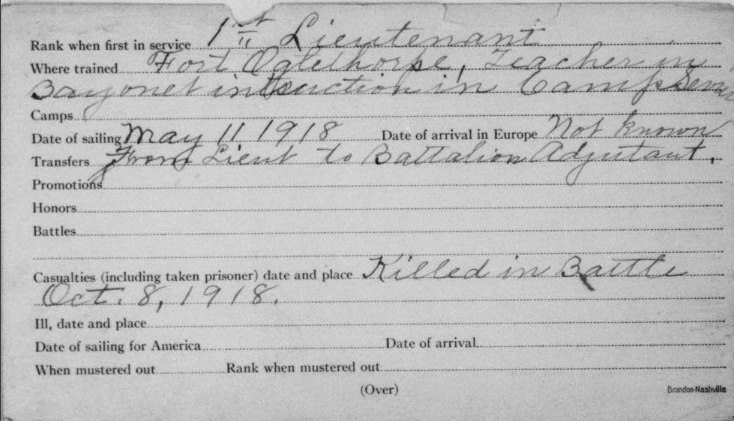 Rank when first in service 1st Lieutenant
Where trained Fort Oglethorpe, Teacher in
Bayonet instruction in Camp Sevier
Camps
Date of sailing May 11 1918 Date of arrival in Europe Not known
Transfers From Lieut to Battalion Adjutant.
Promotions
Honors
Battles
Casualties (including taken prisoner) date and place Killed in Battle
Oct. 8, 1918.
Ill, date and place
Date of sailing for America Date of arrival
When mustered out Rank when mustered out
(Over)
Brandon-Nashville